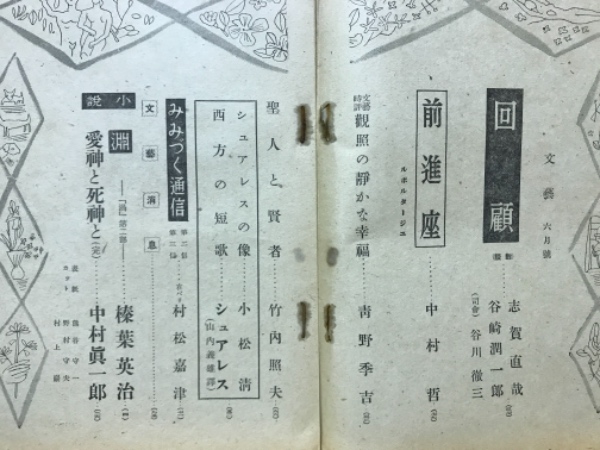 文藝 六月號
回顧
志賀直哉
谷崎潤一郎
(司會) 谷川徹三
前進座
ルポルタージュ
中村哲
文藝時評
觀照の靜かな幸福……靑野季吉
聖人と賢者……竹內照夫
シュアレスの像……小松淸
西方の短歌……シュアレス
(山內義雄譯)
みみづく通信
村松嘉津
文藝消息
小說
淵
―「渦」第二部―
榛葉英治
愛神と死神と……中村眞一郎
表紙 熊谷守一
カット 野村守夫
村上